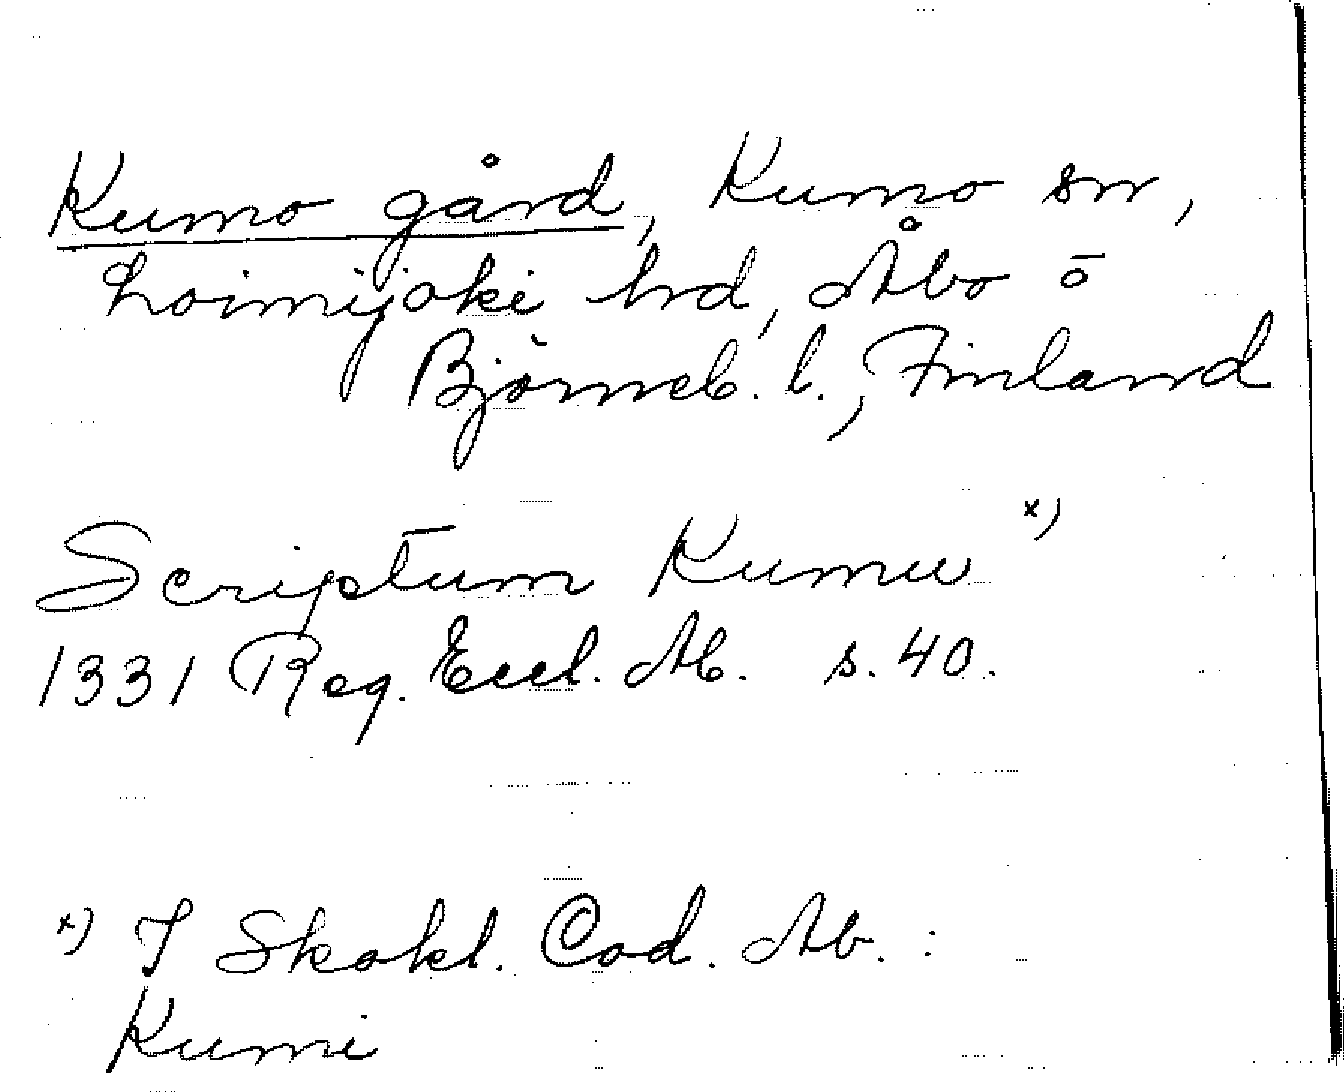 Kumo gård, Kumo sn,
Loimijoki hd, Åbo o
Björneb. l., Finland
Scriptum Kumu x)
1331 Reg. Eccl. Ab. s. 40.
x) I Skokl. Cod. Ab. :
Kumi